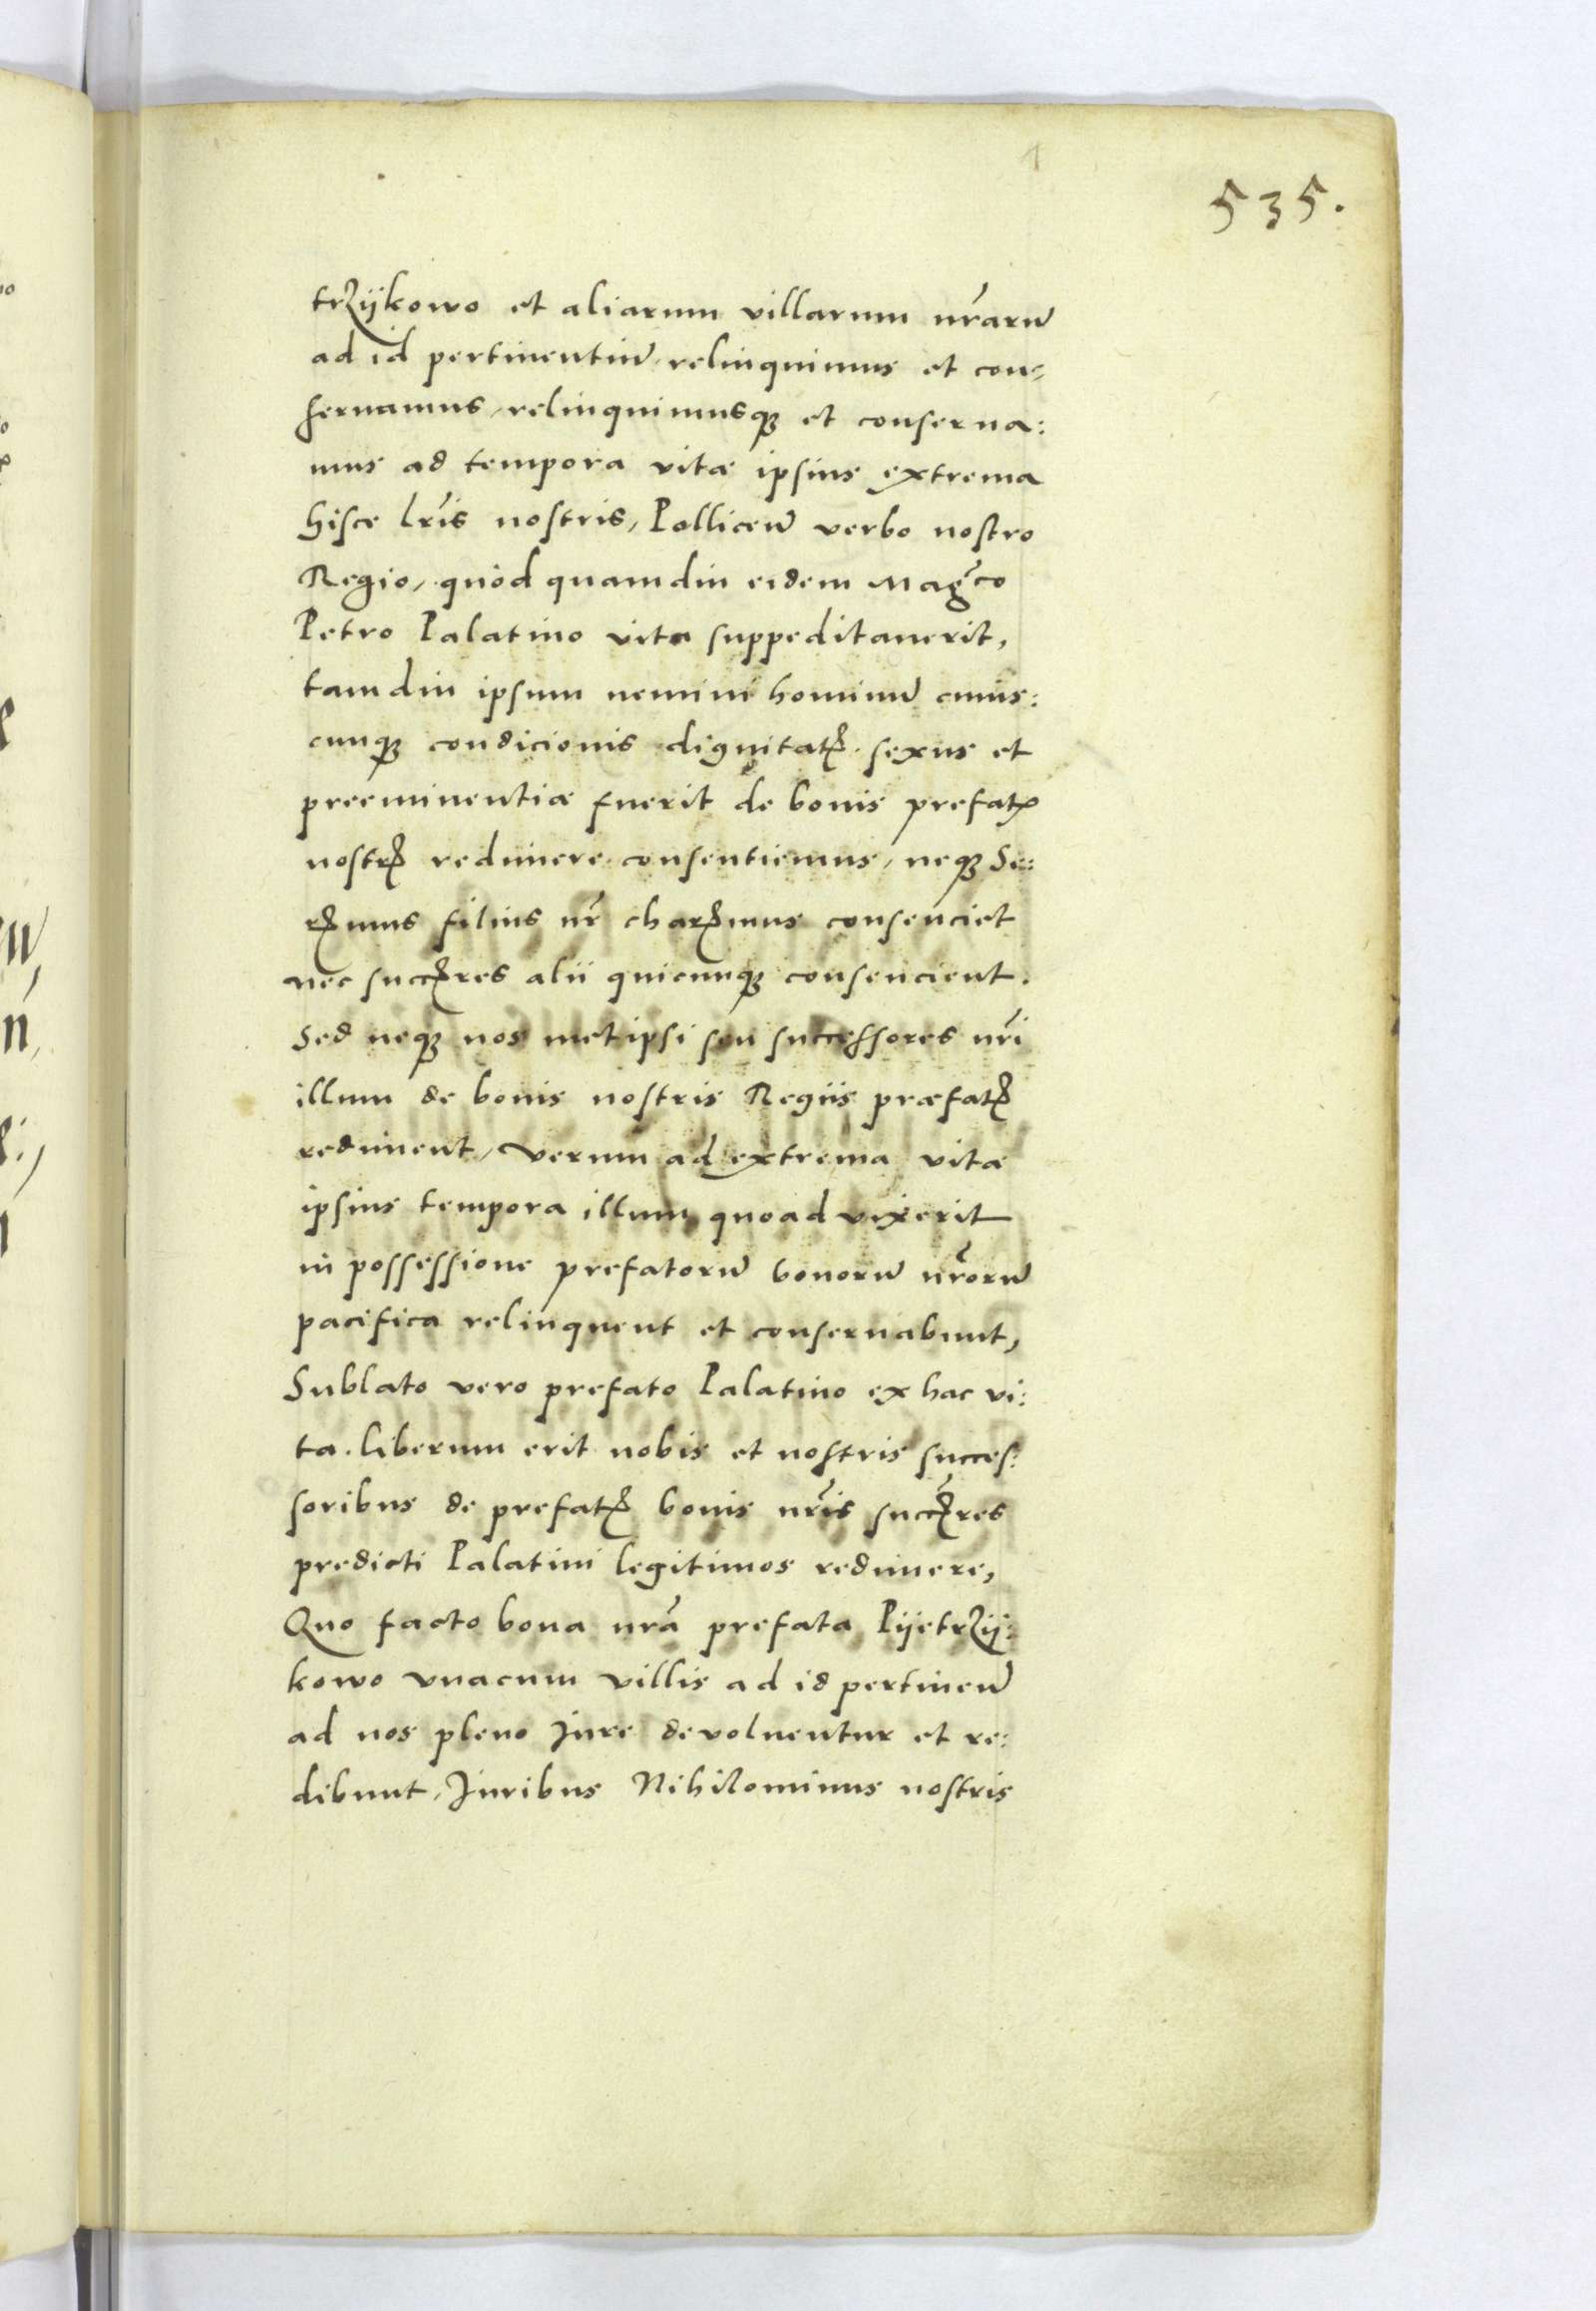 535.
trzijkowo et aliarum villarum nr̃arũ
ad id pertinentiũ relinquimus et con-
seruamus, relinquimusq₃ et conserua:
mus ad tempora vitæ ipsius extrema
hisce lr̃is nostris, Pollicem̃ verbo nostro
Regio, quòd quamdiu eidem Mag̃co
Petro Palatino vita suppeditauerit,
tamdiu ipsum nemini hominũ cuius:
cunq₃ condicionis dignitatꝭ sexus et
preeminentiæ fuerit de bonis prefatꝭ
nostrꝭ redimere consentiemus, neq₃ Se:
rꝭmus filius nr̃ charꝭmus consenciet
nec succꝭres alii quicunq₃ consencient.
Sed neq₃ nos metipsi seu successores nr̃i
illum de bonis nostris Regiis præfatꝭ
rediment, verum ad extrema vitæ
ipsius tempora illum quoad vixerit
in possessione prefatorũ bonorũ nr̃orũ
pacifica relinquent et conseruabunt,
Sublato vero prefato Palatino ex hac vi:
ta. liberum erit nobis et nostris succes:
soribus de prefatꝭ bonis nr̃is succꝭres
predicti Palatini legitimos redimere,
Quo facto bona nr̃a prefata Pijetrzij:
kowo vnacum villis ad id pertinen̄
ad nos pleno Jure deuoluentur et re:
dibunt, Juribus Nihilominus nostris